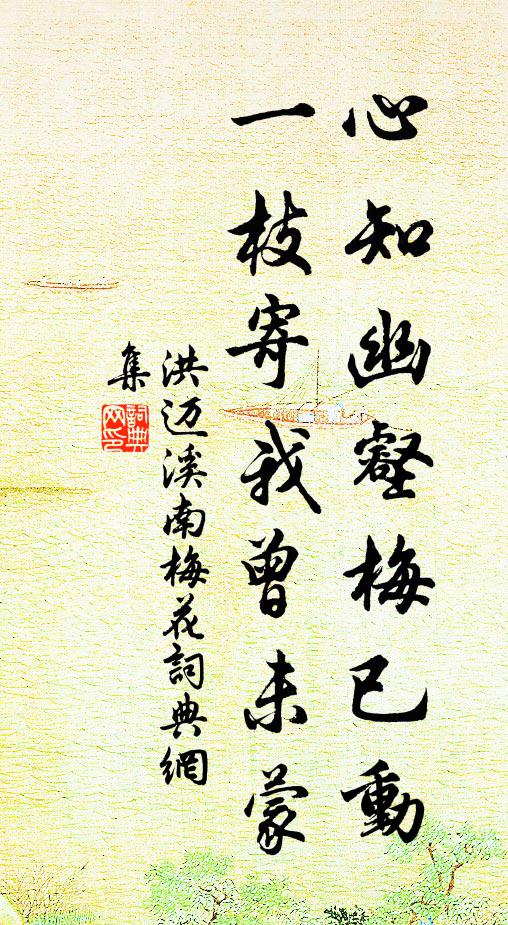 心知幽壑梅已動
一枝寄我曾未蒙
洪迈溪南梅花詞典網
集
詞典
网印